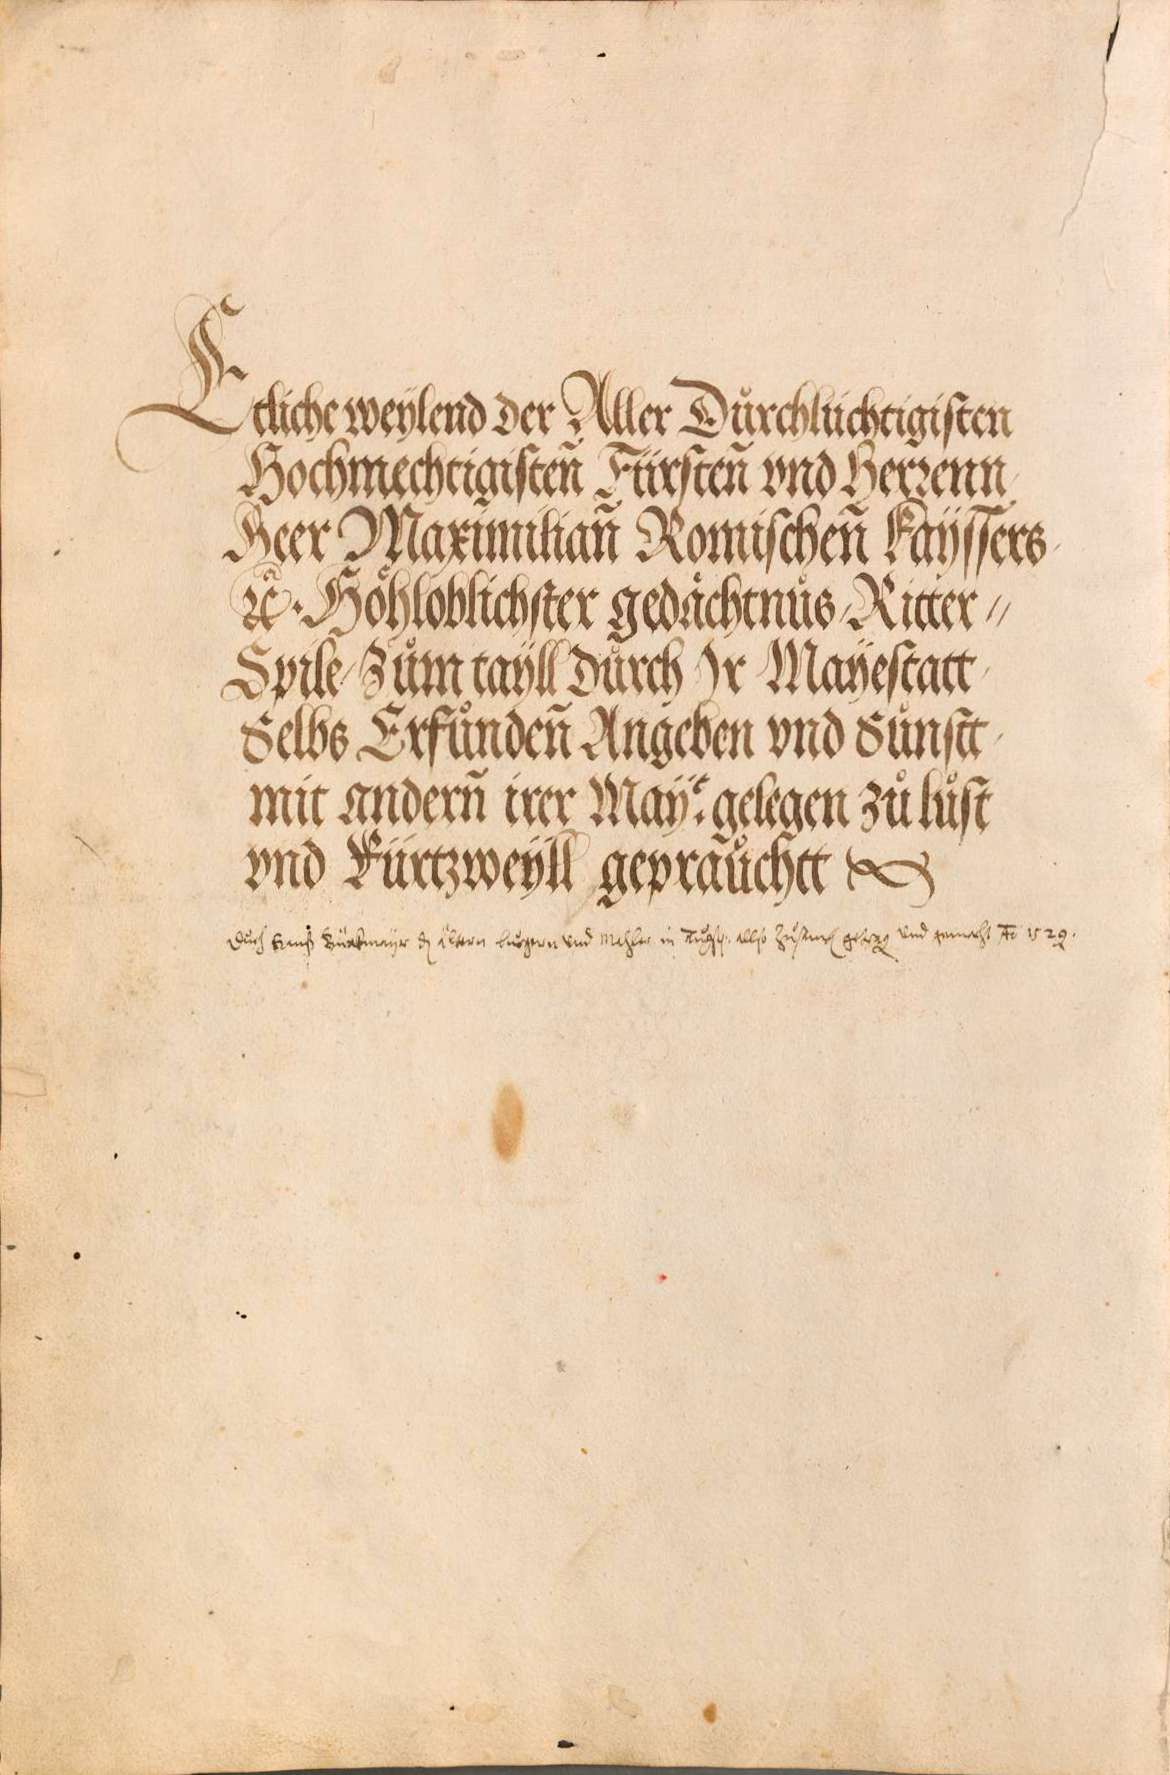 Etliche weÿlend der Aller Důrchlüchtigisten
Hochmechtigisten̄ Fürsten̄ vnd Herrenn,
Heer Maximilian̄ Romischen̄ Kaÿssers,
ꝛc. Höhloblichster gedächtnůs, Ritter //
Spile, Zům tayll Dürch Ir Maÿestatt,
Selbs Erfůnden̄ Angeben vnd Sůnstt,
mit andern̄ irer Maÿ.t gelegen zů lůst
vnd Kürtzweÿll gepraůchtt
Durch Hanns Bůrkmayr den Eltern burgern vnd Mahler in Augsp: allso gemacht A̅o 1529.